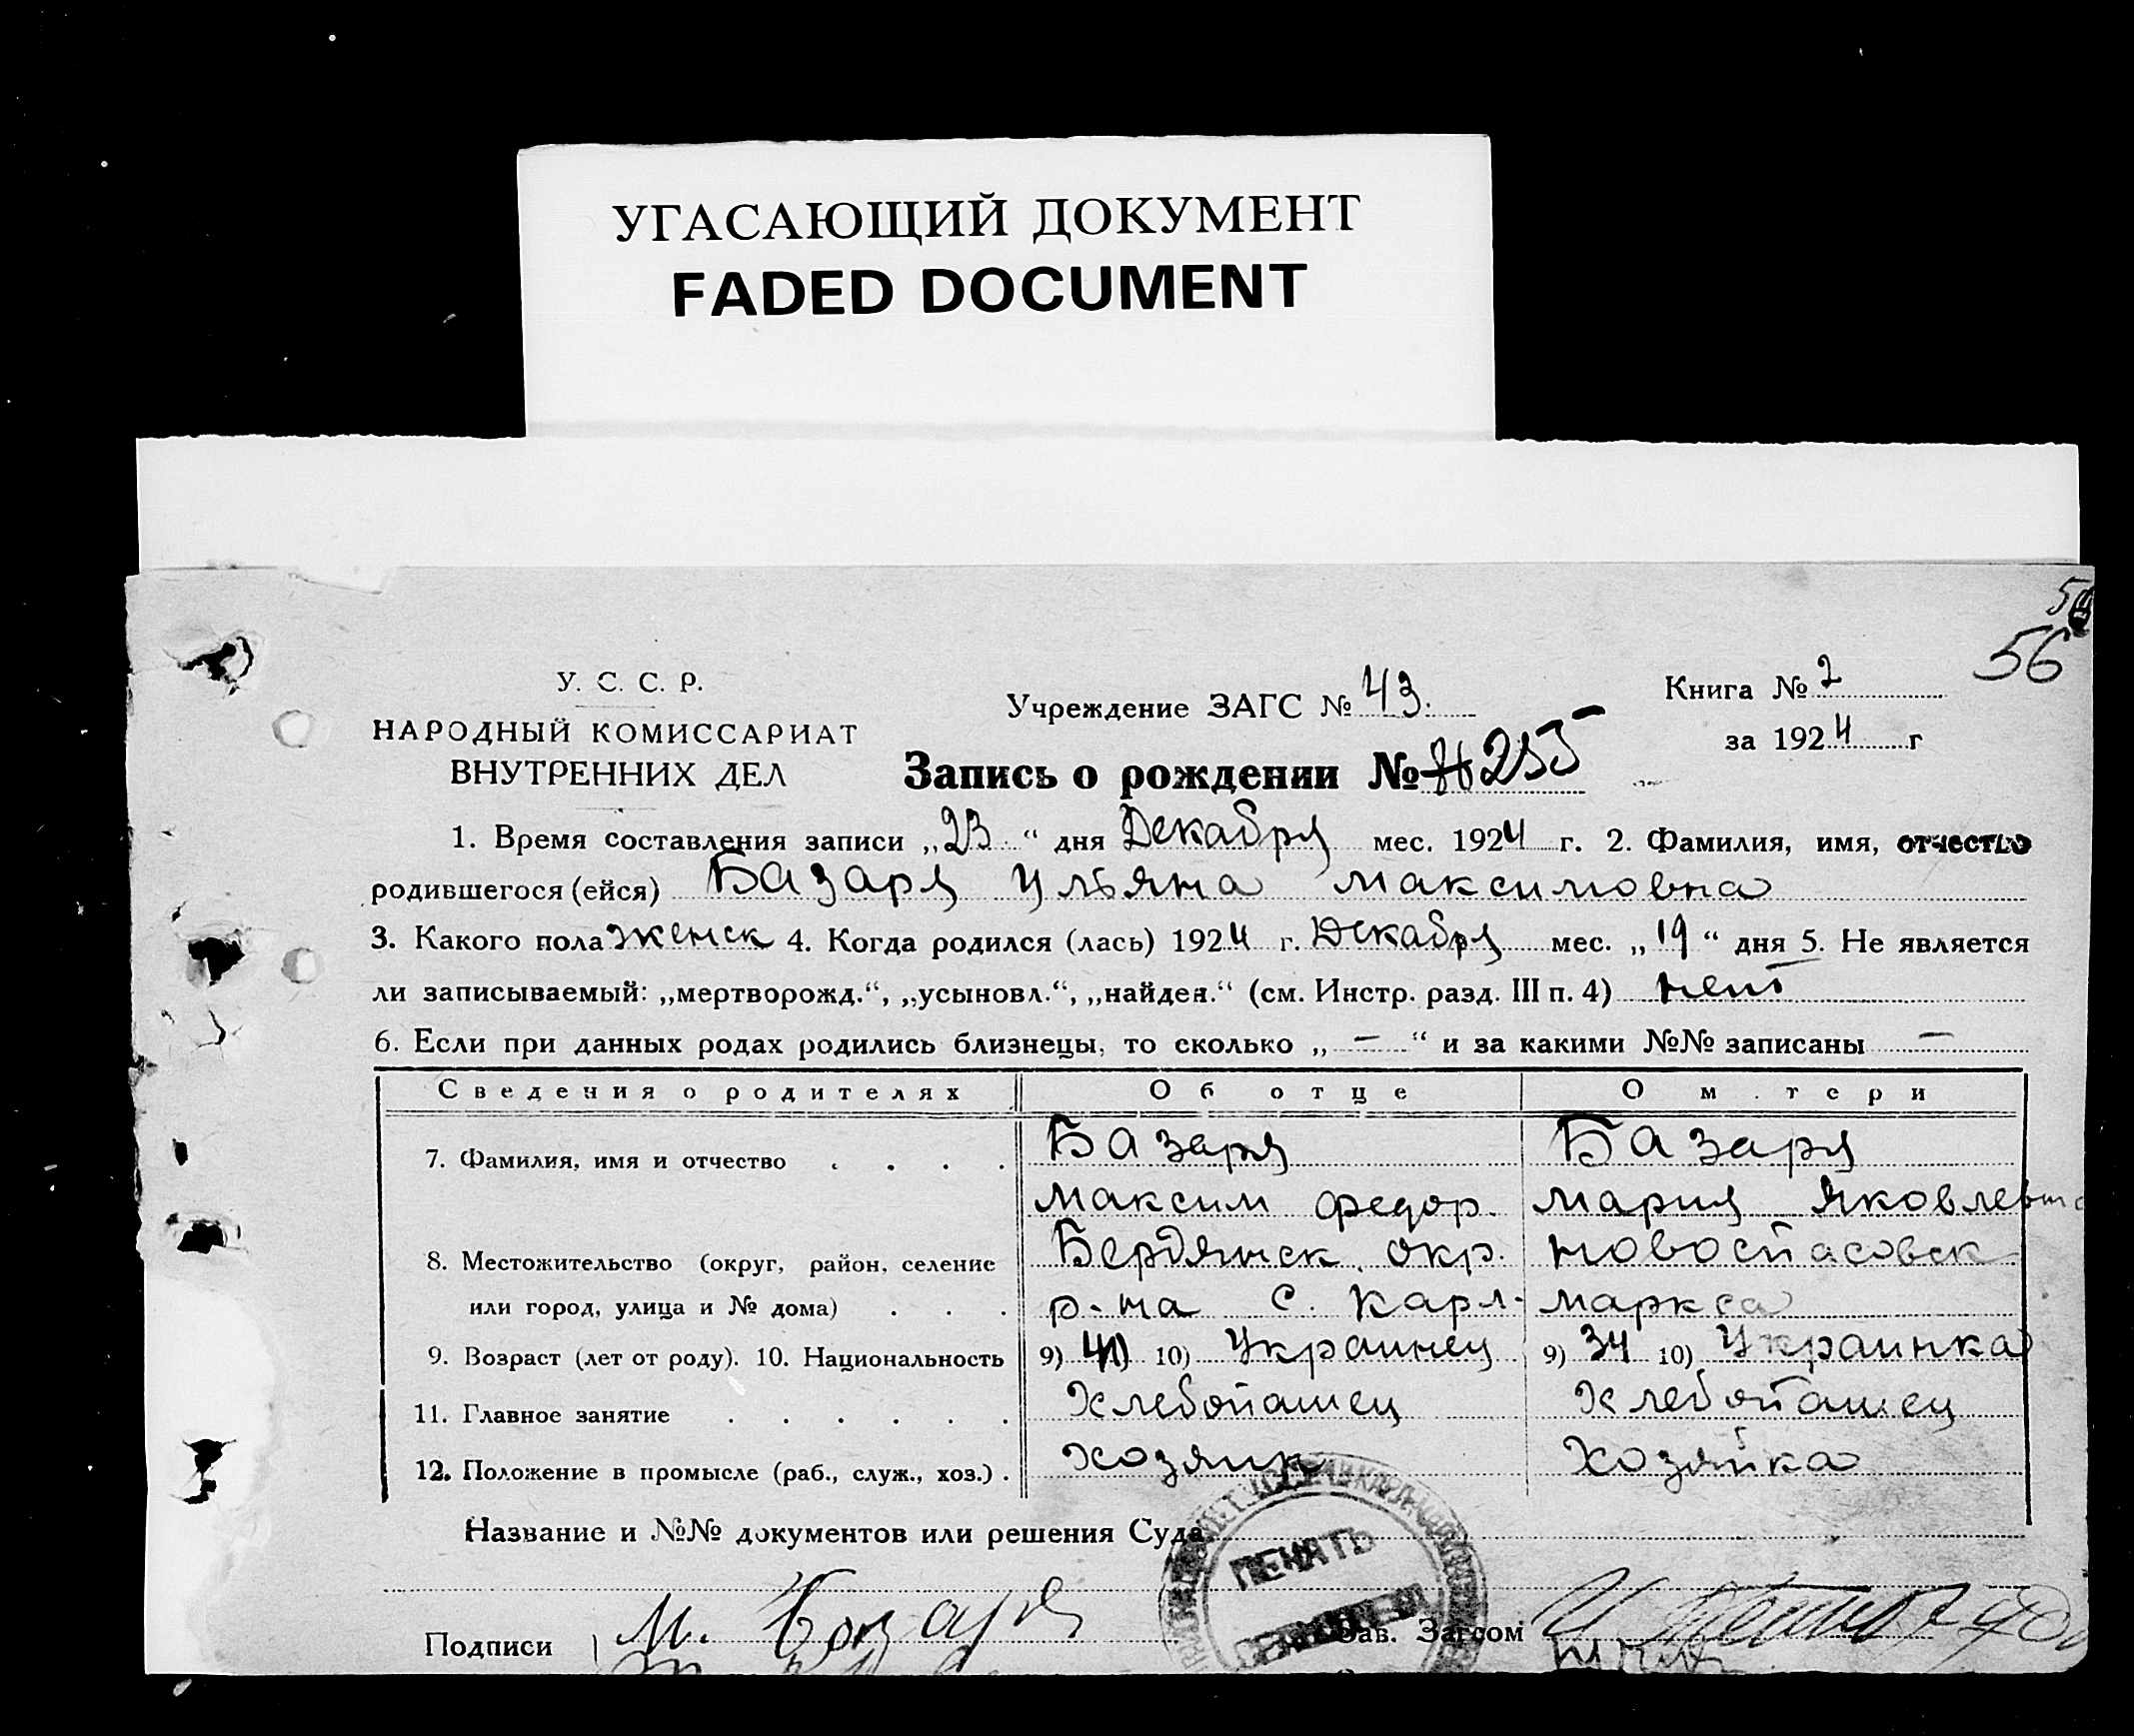 УГАСАЮЩИЙ ДОКУМЕНТ
FADED DOCUMENT
56
У. С. С. Р.
НАРОДНЫЙ КОМИССАРИАТ
ВНУТРЕННИХ ДЕЛ
Учреждение ЗАГС № 43.
Книга № 2
за 1924 г
Запись о рождении № 255
1. Время составления записи „23“ дня Декабря мес. 1924 г. 2. Фамилия, имя, отчество
родившегося (ейся) Базаря Ульяна Максимовна
3. Какого пола женск 4. Когда родился (лась) 1924 г. Декабря мес. „19“ дня 5. Не является
ли записываемый: „мертворожд.“, „усыновл.“, „найден.“ (см. Инстр. разд. III п. 4) нет
6. Если при данных родах родились близнецы, то сколько „ — “ и за какими №№ записаны —
Сведения о родителях Об отце О м тери
7. Фамилия, имя и отчество Базаря Базаря
Максим Федор. Мария Яковлевна
8. Местожительство (округ, район, селение Бердянск. окр. Новоспасовск
или город, улица и № дома) р-на с. Карл- Маркса
9. Возраст (лет от роду). 10. Национальность 9) 10) Украинец 9) 34 10) Украинка
11. Главное занятие Хлебопашец Хлебопашец
12. Положение в промысле (раб., служ., хоз.) Хозяин Хозяйка
Название и №№ документов или решения Суда
ПЕЧАТЬ
Подписи М. Базаря Зав. Загсом